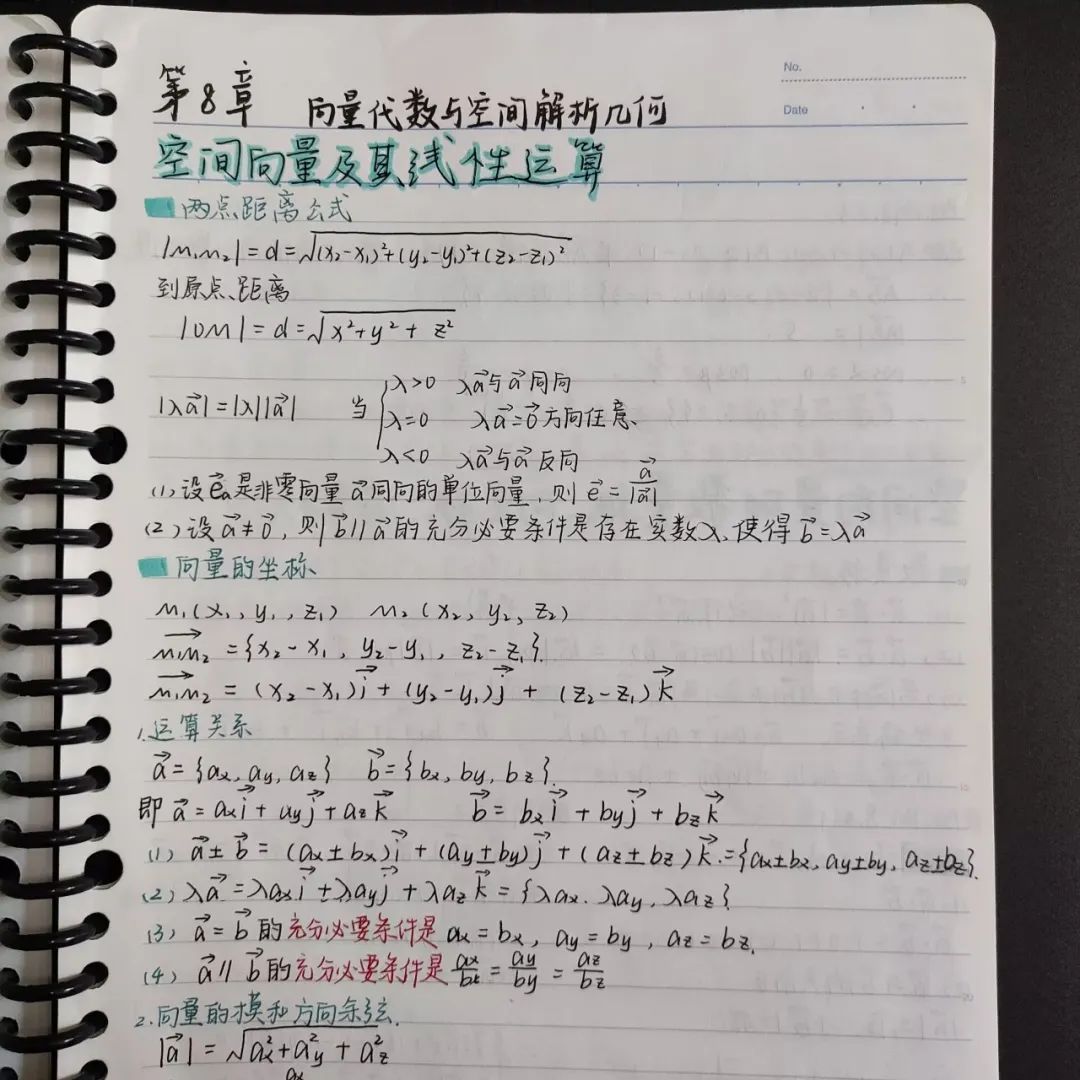 No.
Date
第8章 向量代数与空间解析几何
空间向量及其线性运算
两点距离公式
|M₁M₂|=d=√(x₂-x₁)²+(y₂-y₁)²+(z₂-z₁)²
到原点距离
|OM|=d=√x²+y²+z²
|λa⃗|=|λ||a⃗| 当 { λ>0 λa⃗与a⃗同向
λ=0 λa⃗=0⃗方向任意
λ<0 λa⃗与a⃗反向
(1)设e⃗ₐ是非零向量a⃗同向的单位向量,则e⃗=a⃗/|a⃗|
(2)设a⃗≠0⃗,则b⃗∥a⃗的充分必要条件是存在实数λ,使得b⃗=λa⃗
向量的坐标
M₁(x₁,y₁,z₁) M₂(x₂,y₂,z₂)
M₁M₂⃗={x₂-x₁,y₂-y₁,z₂-z₁}.
M₁M₂⃗=(x₂-x₁)i⃗+(y₂-y₁)j⃗+(z₂-z₁)k⃗
1.运算关系
a⃗={ax,ay,az} b⃗={bx,by,bz}.
即a⃗=axi⃗+ayj⃗+azk⃗ b⃗=bxi⃗+byj⃗+bzk⃗
(1)a⃗±b⃗=(ax±bx)i⃗+(ay±by)j⃗+(az±bz)k⃗.={ax±bx,ay±by,az±bz}.
(2)λa⃗=λaxi⃗±λayj⃗+λazk⃗={λax.λay,λaz}.
(3)a⃗=b⃗的充分必要条件是ax=bx,ay=by,az=bz.
(4)a⃗∥b⃗的充分必要条件是ax/bx=ay/by=az/bz
2.向量的模和方向余弦.
|a⃗|=√ax²+ay²+az²
ax